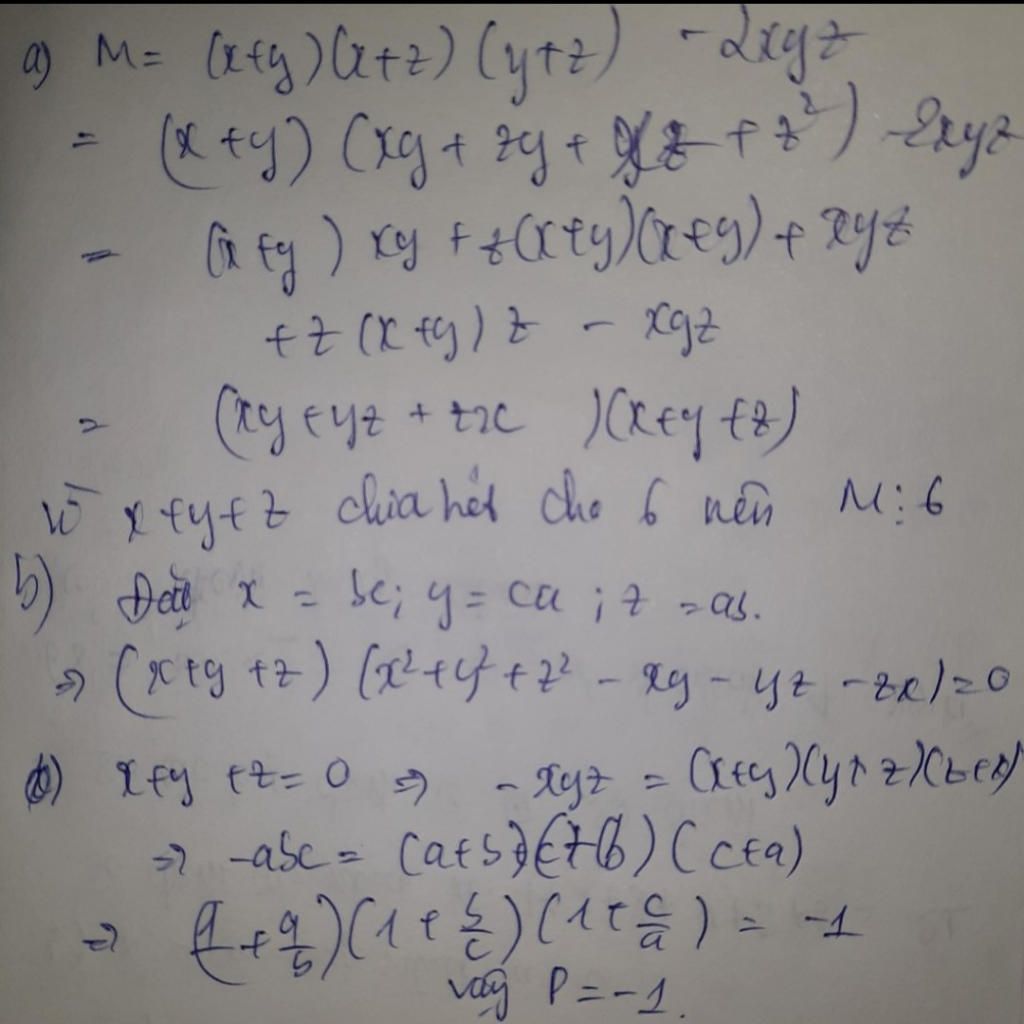 a) M = (x+y)(x+z)(y+z) - 2xyz
= (x+y)(xy + zy + xz + z²) - 2xyz
= (x+y) xy + z(x+y)(x+y) + xyz
+ z(x+y) z - xyz
= (xy + yz + zx )(x+y+z)
Vì x+y+z chia hết cho 6 nên M⋮6
b) Đặt x = bc; y = ca ; z = ab.
⇒ (x+y+z) (x²+y²+z² - xy - yz - zx)=0
x+y+z = 0 ⇒ -xyz = (x+y)(y+z)(z+x)
⇒ -abc = (a+b)(c+b)(c+a)
⇒ (1+a/b)(1+b/c)(1+c/a) = -1
vậy P = -1.